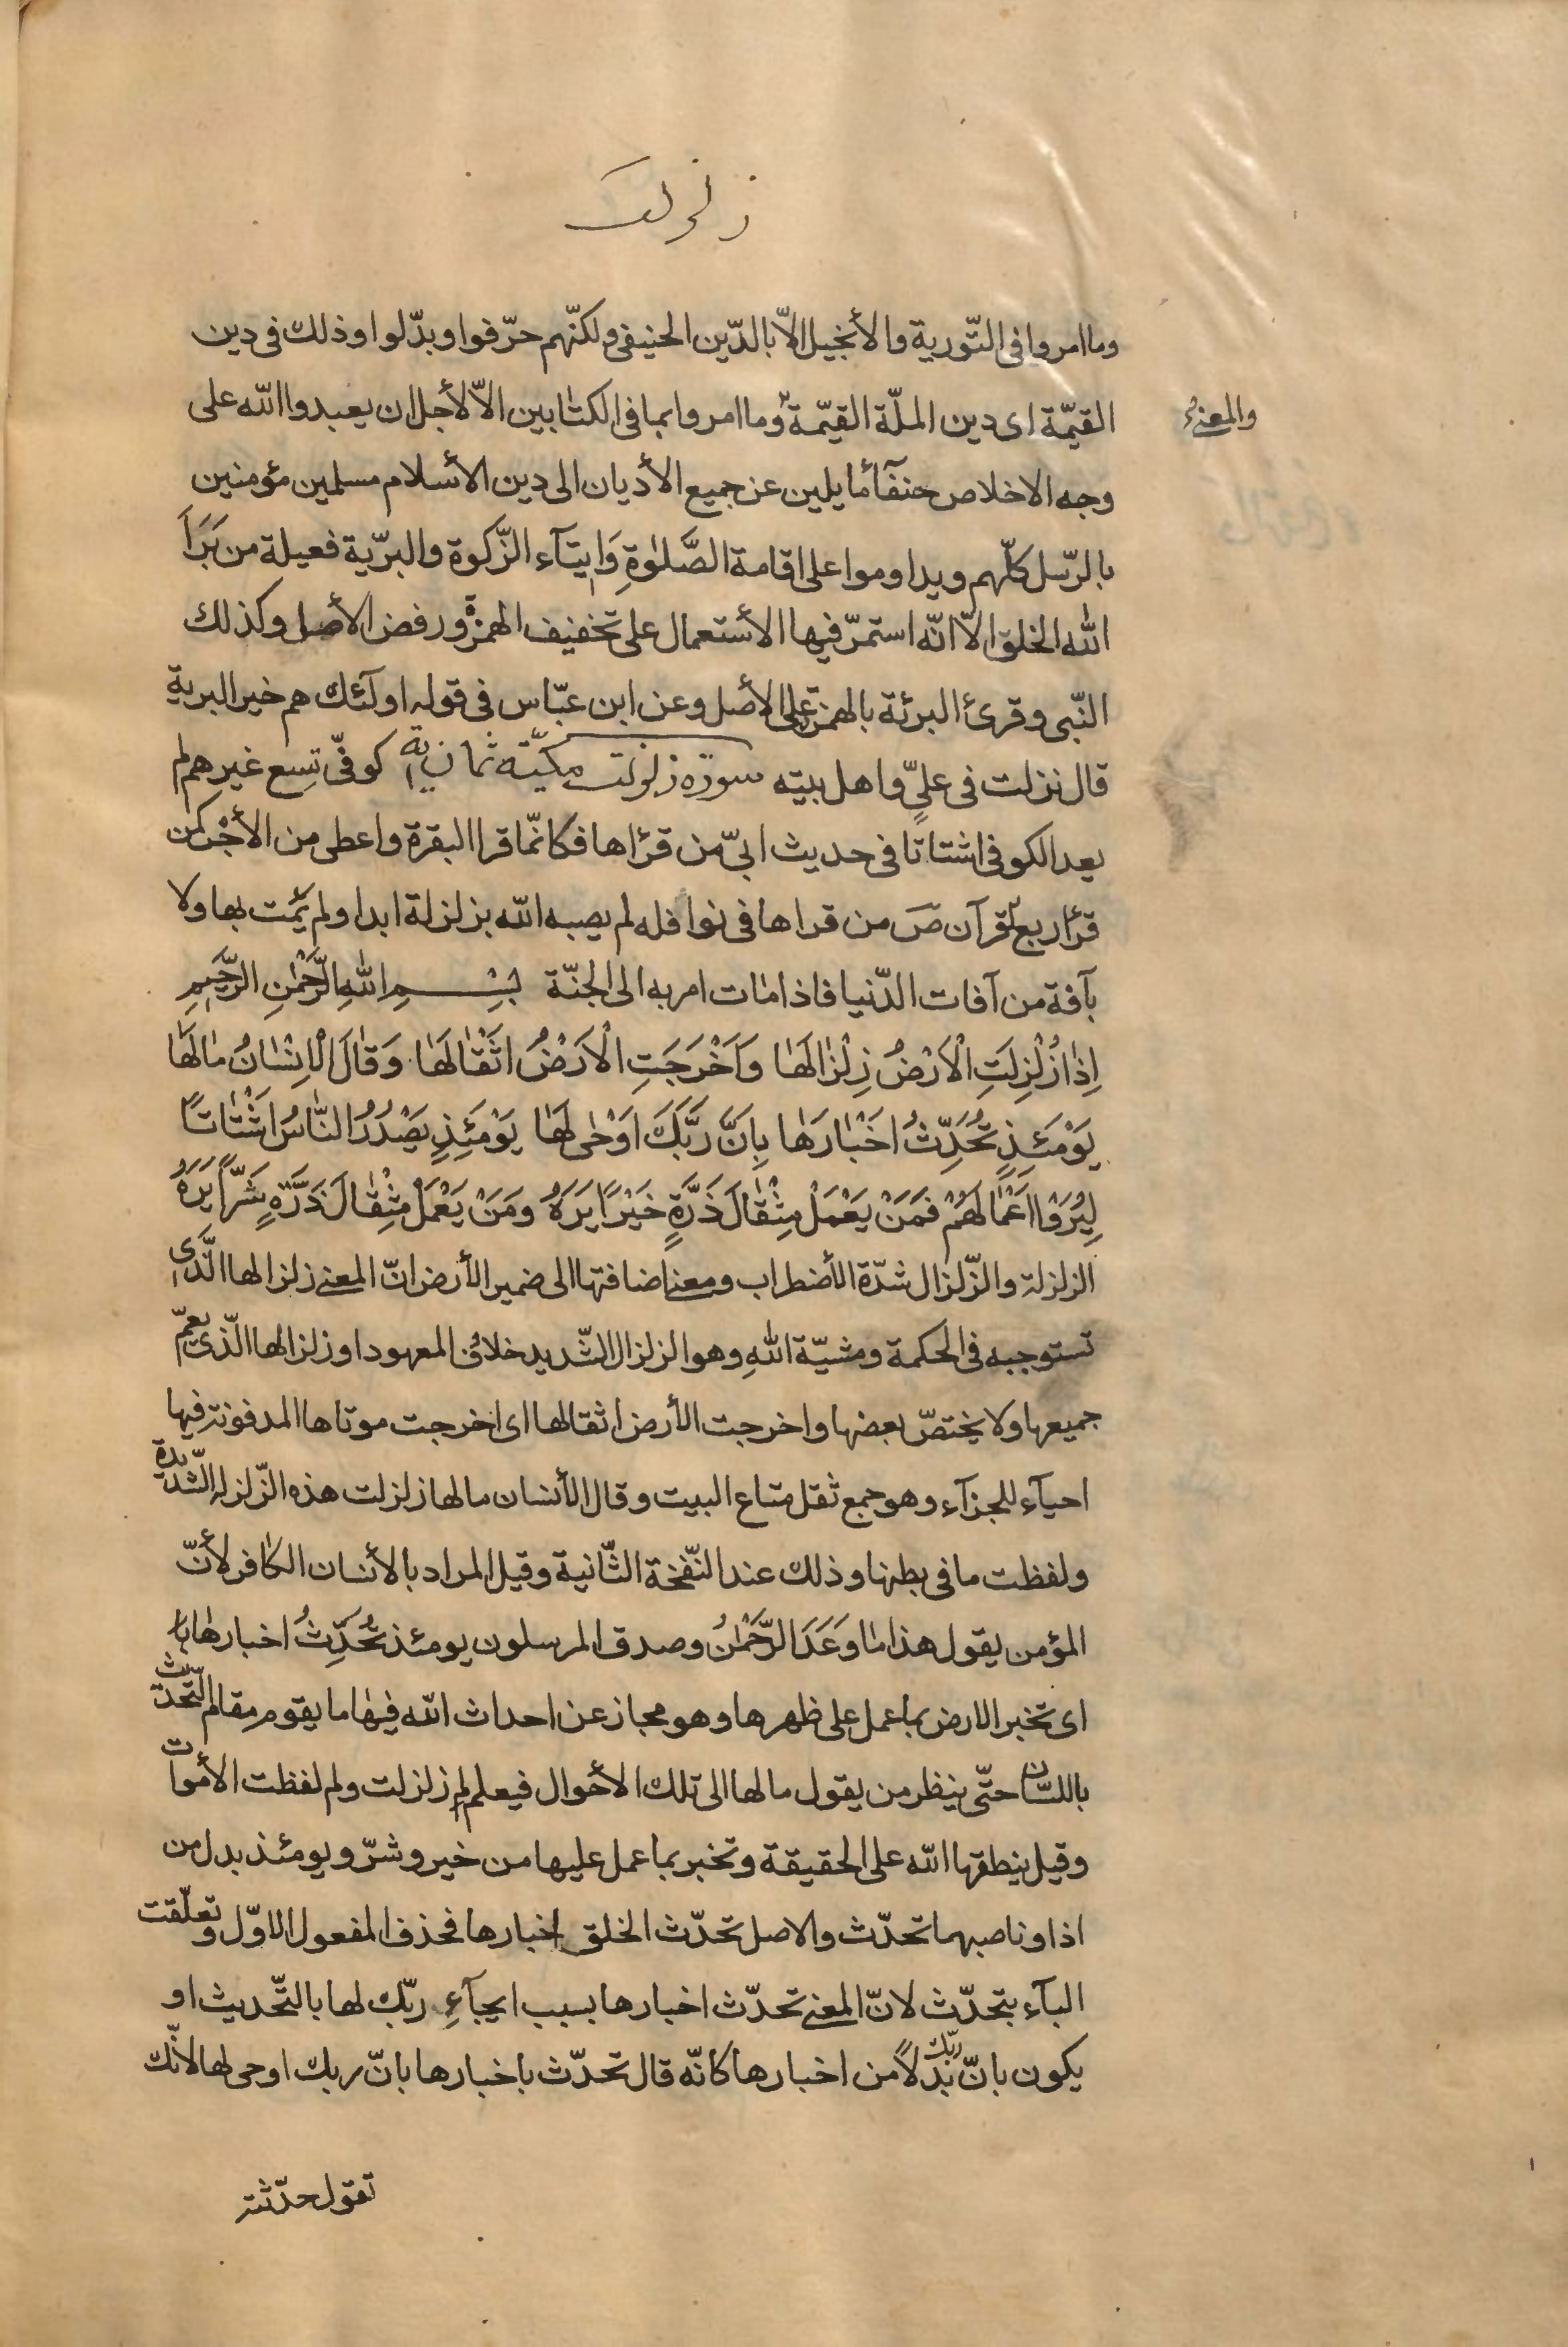 زلزلت
وما امروا فى التّورية والأنجيل الاّ بالدّين الحنيفى ولكنّهم حرّفوا وبدّلوا وذلك فى دين
والمعنى
القيّمة اى دين الملّة القيّمة وما امروا بما فى الكتابين الاّ لأجل ان يعبدوا الله على
وجه الاخلاص حنفآء مايلين عن جميع الأديان الى دين الأسلام مسلمين مؤمنين
بالرّسل كلّهم ويداوموا على اقامة الصَّلوٰةِ وَايتآء الزّكوة والبريّة فعيلة من بَرَأَ
الله الخلق الاّ انّه استمرّ فيها الأستعمال على تخفيف الهمزة ورفض الأصل وكذلك
النّبى وقرئ البرئة بالهمزة على الأصل وعن ابن عبّاس فى قوله اولئك هم خير البرية
قال نزلت فى علىّ واهل بيته سورة زلزلت مكيّة ثمان اية كوفىّ تسع غيرهم لم
يعد الكوفى اشتاتا فى حديث ابىّ من قرأها فكانّما قرا البقرة واعطى من الأجر كمن
قرأ ربع القرآن صَ من قراها فى نوافله لم يصبه الله بزلزلة ابدا ولم يمت بها ولا
بآفة من آفات الدّنيا فاذا مات امر به الى الجنّة بِسْمِ اللهِ الرَّحْمٰنِ الرَّحٖيمِ
اِذٰا زُلْزِلَتِ الْاَرْضُ زِلْزٰالَهٰا وَاَخْرَجَتِ الْاَرْضُ اَثْقٰالَهٰا وَقٰالَ الْاِنْسٰانُ مٰالَهٰا
يَوْمَئِذٍ تُحَدِّثُ اَخْبٰارَهٰا بِاَنَّ رَبَّكَ اَوْحٰى لَهٰا يَوْمَئِذٍ يَصْدُرُ النّٰاسُ اَشْتٰاتًا
لِيُرَوْا اَعْمٰالَهُمْ فَمَنْ يَعْمَلْ مِثْقٰالَ ذَرَّةٍ خَيْرًا يَرَهُ وَمَنْ يَعْمَلْ مِثْقٰالَ ذَرَّةٍ شَرًّا يَرَهُ
الزلزلة والزّلزال شدّة الأضطراب ومعنى اضافتها الى ضمير الأرض انّ المعنى زلزالها الّذى
تستوجبه فى الحكمة ومشيّة اللهِ وهو الزلزال الشّديد خلاف المعهود او زلزالها الّذى يعمّ
جميعها ولا يختصّ بعضها واخرجت الأرض اثقالها اى اخرجت موتاها المدفونة فيها
احيآء للجزآء وهو جمع ثقل متاع البيت وقال الأنسان مالها زلزلت هذه الزّلزلة الشّديدة
ولفظت ما فى بطنها وذلك عند النّفخة الثّانية وقيل المراد بالأنسان الكافر لأنّ
المؤمن يقول هذا ما وَعَدَ الرَّحْمٰنُ وصدق المرسلون يومئذ تُحَدِّثُ اخبارها
اى تخبر الارض بما عمل على ظهرها وهو مجاز عن احداث الله فيها ما يقوم مقام التّحدّث
باللسان حتّى ينظر من يقول مالها الى تلك الأحوال فيعلم لم زلزلت ولم لفظت الأموات
وقيل ينطقها الله على الحقيقة وتخبر بما عمل عليها من خير وشرّ ويومئذ بدل من
اذا وناصبهما تحدّث والاصل تحدّث الخلق اخبارها فحذف المفعول الاوّل وتعلّقت
البآء بتحدّث لانّ المعنى تحدّث اخبارها بسبب ايحآءِ ربّك لها بالتّحديث او
يكون بانّ ربّك بدلاً من اخبارها كانّه قال تحدّث باخبارها بانّ ربك اوحى لها لانّك
تقول حدّثته